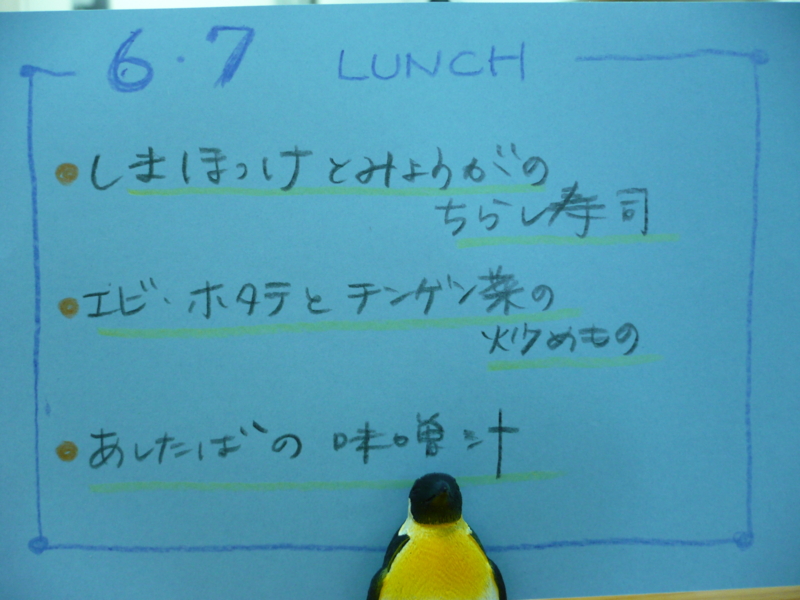 6・7 LUNCH
しまほっけとみょうがの
ちらし寿司
エビ・ホタテとチンゲン菜の
炒めもの
あしたばの味噌汁